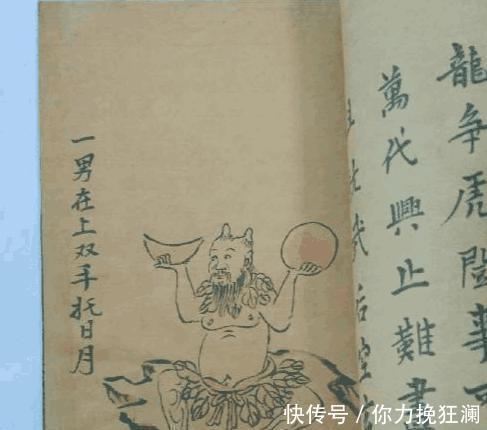 龍争虎閗事
萬代興止難
后
一男在上双手托日月
快传号 / 你力挽狂澜